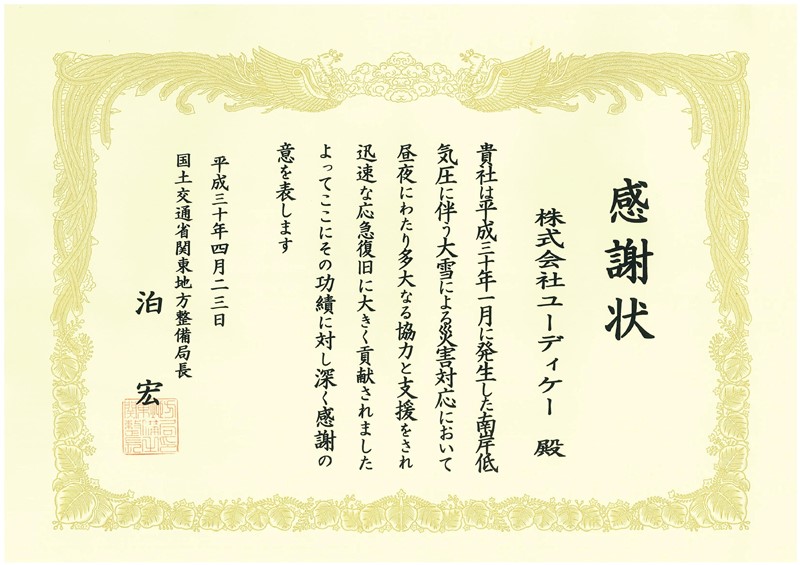 感謝状
株式会社ユーディケー 殿
貴社は平成三十年一月に発生した南岸低
気圧に伴う大雪による災害対応において
昼夜にわたり多大なる協力と支援をされ
迅速な応急復旧に大きく貢献されました
よってここにその功績に対し深く感謝の
意を表します
平成三十年四月二三日
国土交通省関東地方整備局長
泊 宏